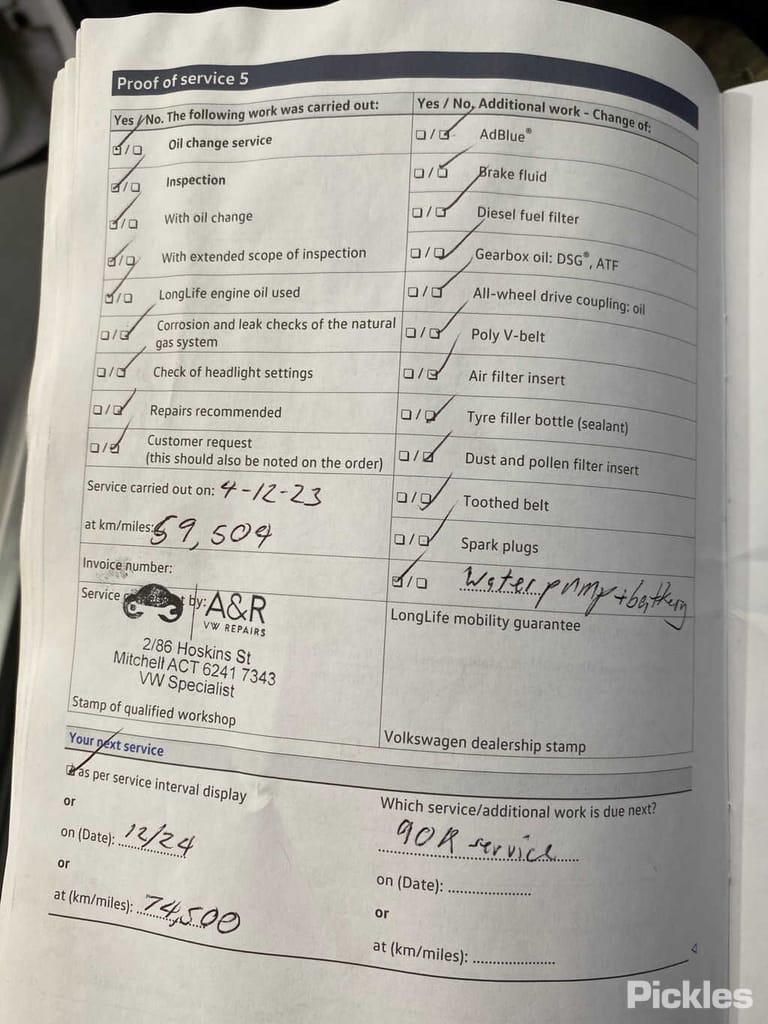 Proof of service 5
Yes / No. The following work was carried out:
Oil change service
Inspection
With oil change
With extended scope of inspection
LongLife engine oil used
Corrosion and leak checks of the natural
gas system
Check of headlight settings
Repairs recommended
Customer request
(this should also be noted on the order)
Service carried out on: 4-12-23
at km/miles: 59,504
Invoice number:
Service by:
A&R
VW REPAIRS
2/86 Hoskins St
Mitchell ACT 6241 7343
VW Specialist
Stamp of qualified workshop
Yes / No, Additional work - Change of:
AdBlue®
Brake fluid
Diesel fuel filter
Gearbox oil: DSG®, ATF
All-wheel drive coupling: oil
Poly V-belt
Air filter insert
Tyre filler bottle (sealant)
Dust and pollen filter insert
Toothed belt
Spark plugs
Water pump + battery
LongLife mobility guarantee
Volkswagen dealership stamp
Your next service
as per service interval display
or
on (Date): 12/24
or
at (km/miles): 74,500
Which service/additional work is due next?
90K service
on (Date):
or
at (km/miles):
Pickles